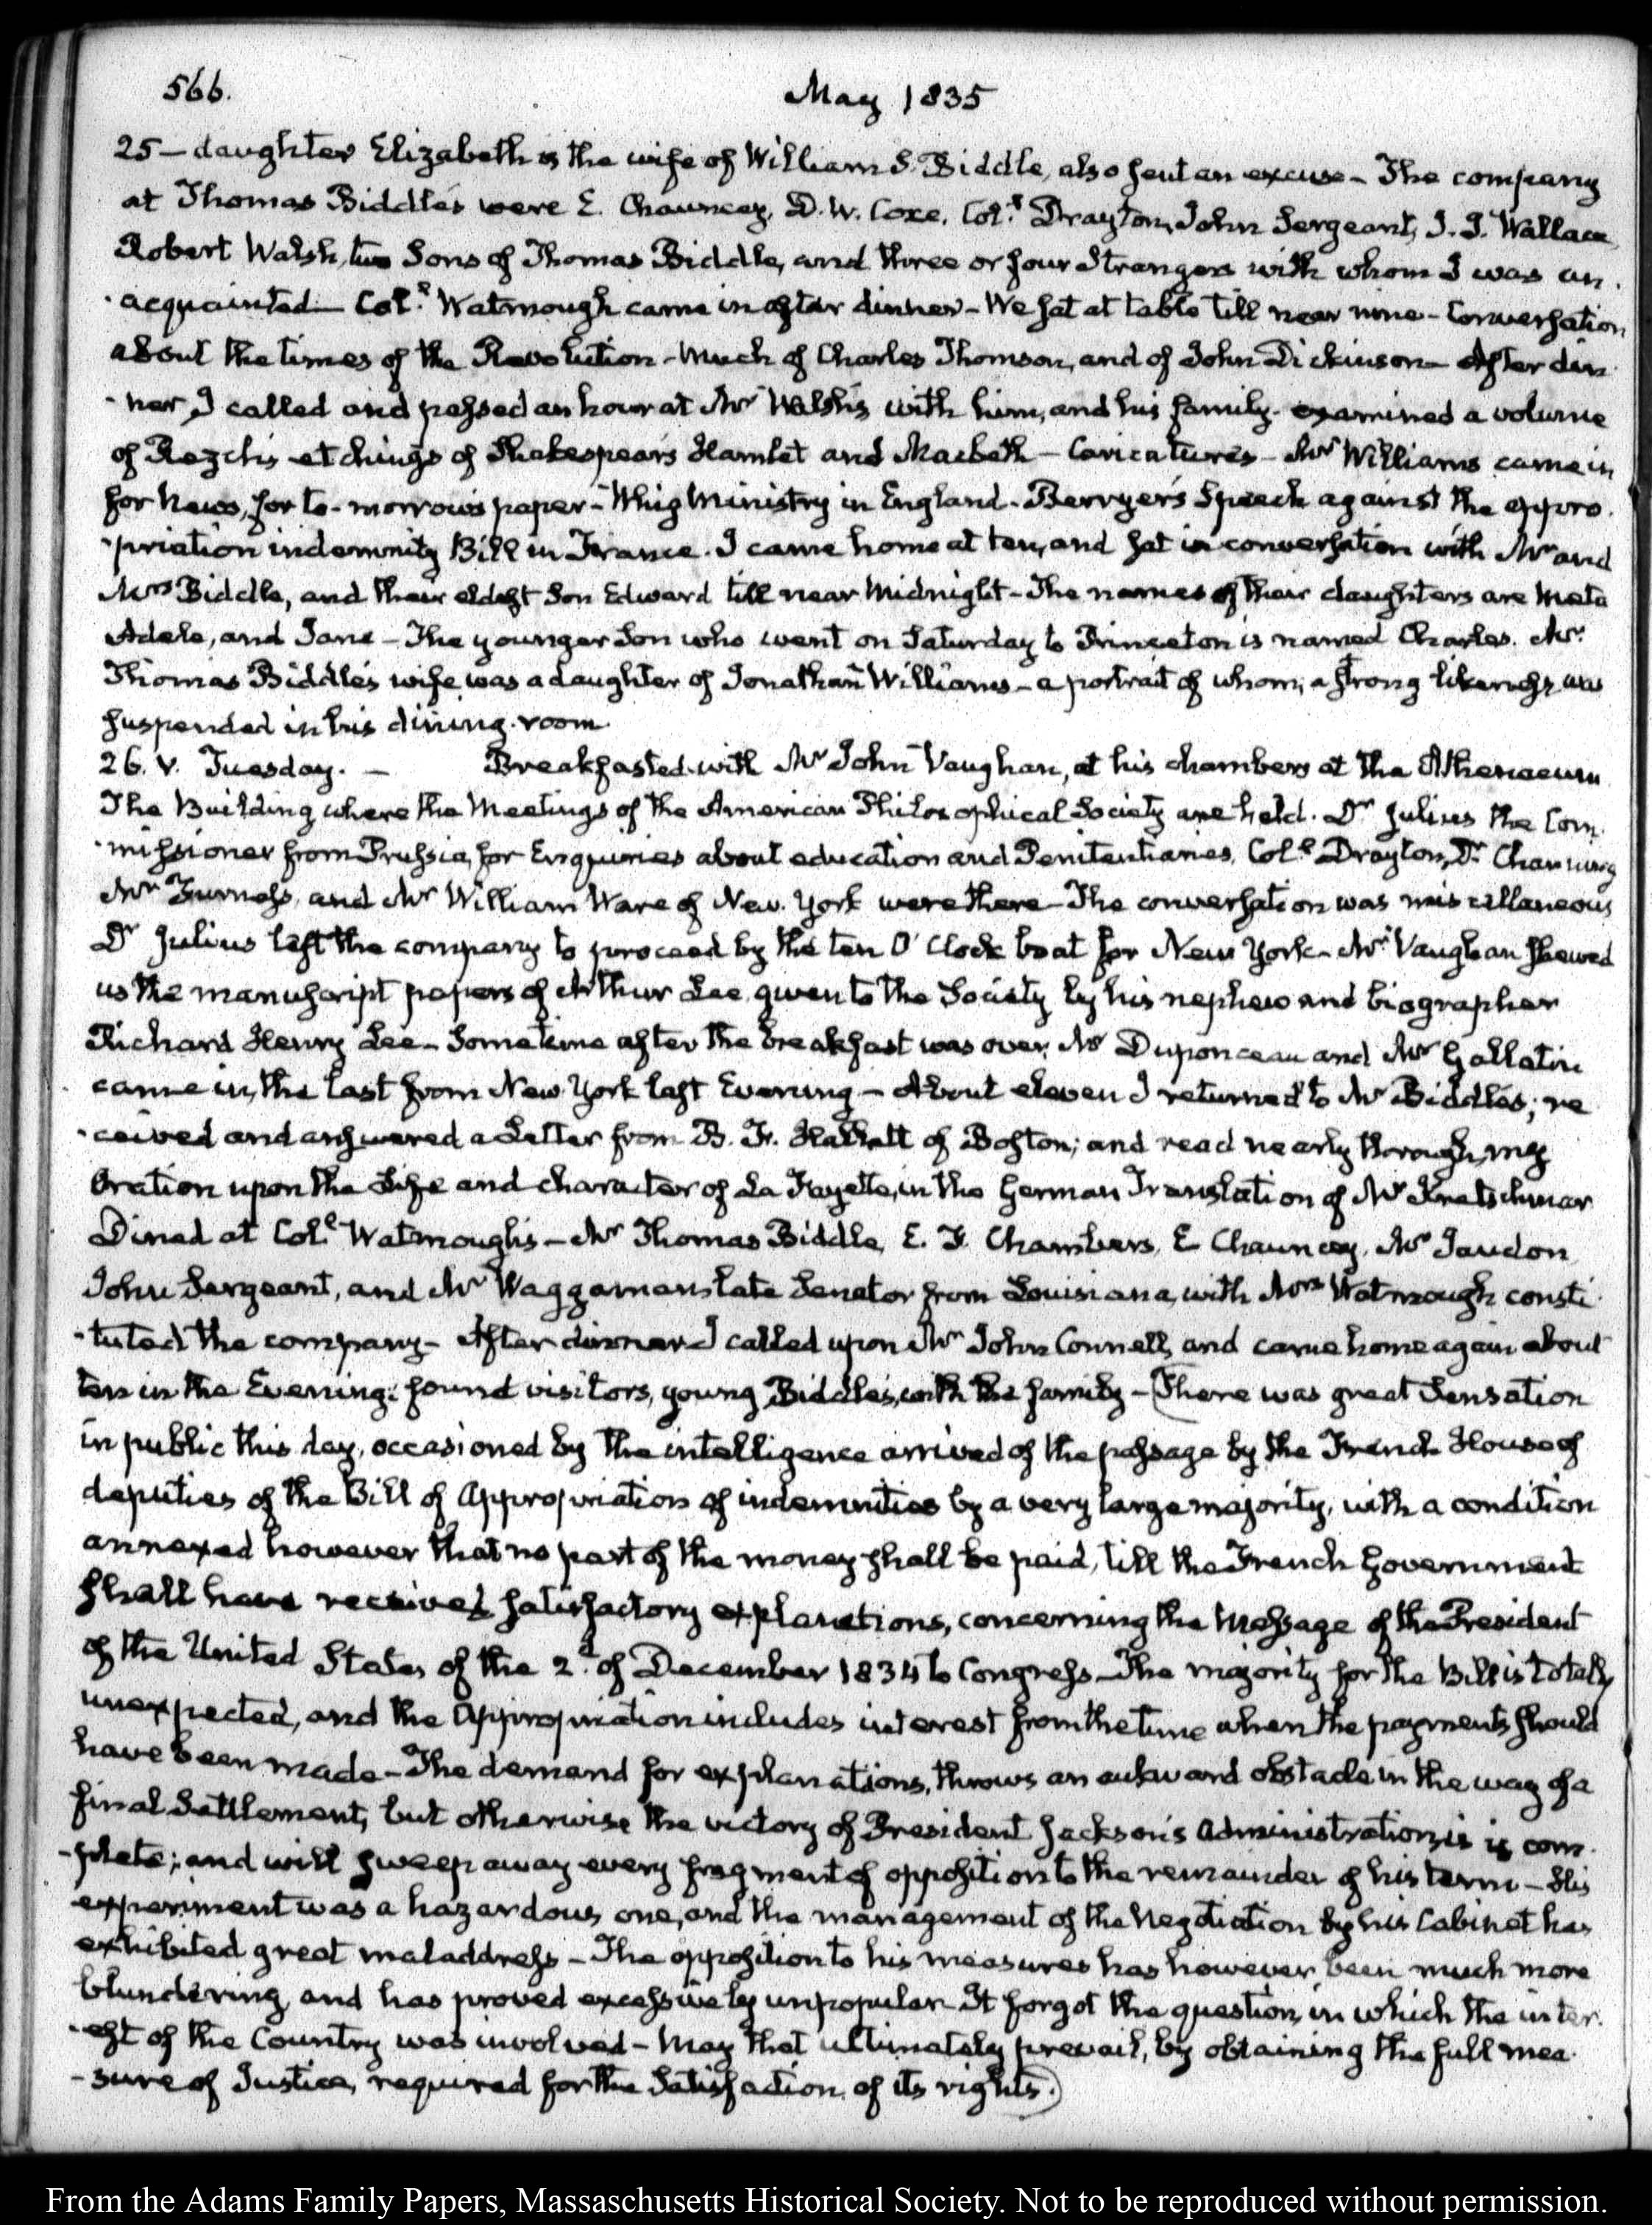 566.
May 1835
25 — daughter Elizabeth is the wife of William S. Biddle, also sent an excuse — The company
at Thomas Biddle's were E. Chauncey, D. W. Coxe, Coll. Drayton, John Sergeant, J. J. Wallace,
Robert Walsh, two Sons of Thomas Biddle, and three or four Strangers with whom I was un-
-acquainted — Coll. Watmough came in after dinner — We sat at table till near nine — Conversation
about the times of the Revolution — much of Charles Thomson, and of John Dickinson — After din-
-ner I called and passed an hour at Mr Walsh's with him, and his family — examined a volume
of Retzch's etchings of Shakespear's Hamlet and Macbeth — Caricatures — Mr Williams came in
for News, for to-morrow's paper — Whig Ministry in England — Berryer's Speech against the appro-
-priation indemnity Bill in France. I came home at ten, and sat in conversation with Mr and
Mrs Biddle, and their eldest Son Edward till near Midnight — The names of their daughters are Meta
Adele, and Jane — The younger Son who went on Saturday to Princeton is named Charles. Mr.
Thomas Biddle's wife was a daughter of Jonathan Williams — a portrait of whom, a strong likeness was
suspended in his dining-room.
26. V. Tuesday. — Breakfasted with Mr John Vaughan, at his chambers at the Athenaeum
The Building where the Meetings of the American Philosophical Society are held. Dr Julius the Com-
-missioner from Prussia, for Enquiries about education and Penitentiaries, Coll. Drayton, Dr Channing
Mr Furness, and Mr William Ware of New-York were there — The conversation was miscellaneous
Dr Julius left the company to proceed by the ten O'Clock boat for New York — Mr Vaughan shewed
us the manuscript papers of Arthur Lee, given to the Society by his nephew and biographer
Richard Henry Lee — Sometime after the breakfast was over, Mr Duponceau and Mr Gallatin
came in, the last from New York last Evening — About eleven I returned to Mr Biddle's; re-
-ceived and answered a Letter from B. F. Hallett of Boston; and read nearly through, my
Oration upon the Life and character of La Fayette, in the German Translation of Mr Kretschmar
Dined at Coll. Watmough's — Mr Thomas Biddle, E. F. Chambers, E. Chauncey, Mr Jaudon
John Sergeant, and Mr Waggaman late Senator from Louisiana, with Mrs Watmough consti-
-tuted the company — After dinner I called upon Mr John Connell, and came home again about
ten in the Evening; found visitors, young Biddles, with the family — (There was great Sensation
in public this day, occasioned by the intelligence arrived of the passage by the French House of
deputies of the Bill of Appropriation of indemnities by a very large majority, with a condition
annexed however that no part of the money shall be paid, till the French Government
shall have received satisfactory explanations, concerning the Message of the President
of the United States of the 2.d of December 1834 to Congress — The majority for the Bill is totally
unexpected, and the Appropriation includes interest from the time when the payments should
have been made — The demand for explanations, throws an aukward obstacle in the way of a
final Settlement, but otherwise the victory of President Jackson's Administration, is is com-
-plete; and will sweep away every fragment of opposition to the remainder of his term — His
experiment was a hazardous one, and the management of the Negotiation by his Cabinet has
exhibited great maladdress — The opposition to his measures has however been much more
blundering and has proved excessively unpopular. It forgot the question, in which the inter-
-est of the Country was involved — May that ultimately prevail, by obtaining the full mea-
-sure of Justice, required for the Satisfaction of its rights.)
From the Adams Family Papers, Massaschusetts Historical Society. Not to be reproduced without permission.